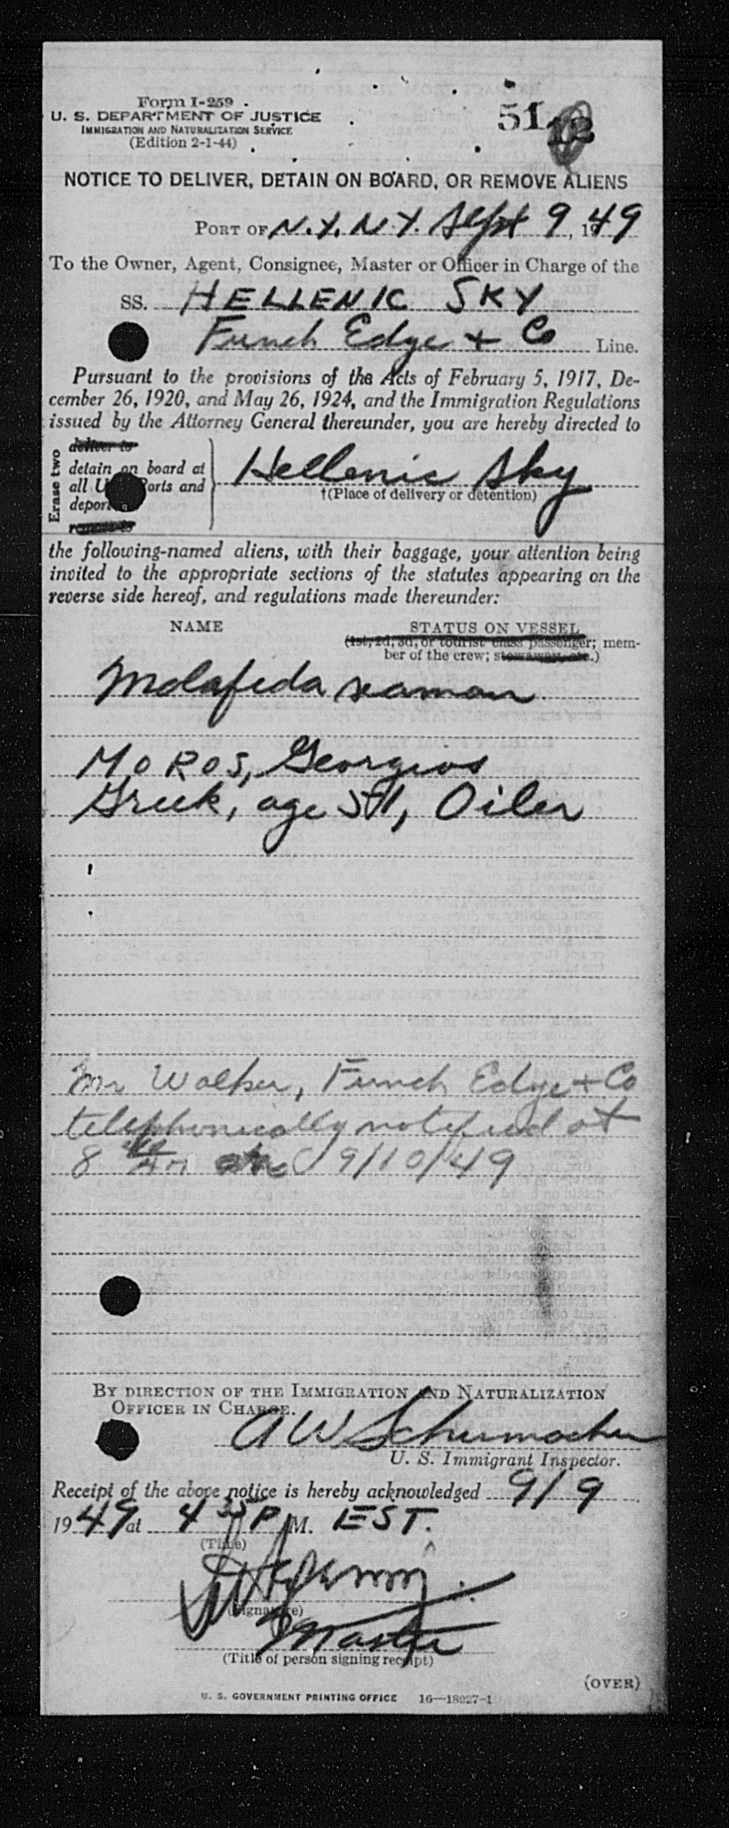 Form I-259
U. S. DEPARTMENT OF JUSTICE
IMMIGRATION AND NATURALIZATION SERVICE
(Edition 2-1-44)
51
12
NOTICE TO DELIVER, DETAIN ON BOARD, OR REMOVE ALIENS
PORT OF N.Y. N.Y. Sept 9, 1949
To the Owner, Agent, Consignee, Master or Officer in Charge of the
SS. HELLENIC SKY
Funch Edge & Co Line.
Pursuant to the provisions of the Acts of February 5, 1917, De-
cember 26, 1920, and May 26, 1924, and the Immigration Regulations
issued by the Attorney General thereunder, you are hereby directed to
Erase two
deliver to
detain on board at
all U. Ports and
deport
remove to
Hellenic Sky
†(Place of delivery or detention)
the following-named aliens, with their baggage, your attention being
invited to the appropriate sections of the statutes appearing on the
reverse side hereof, and regulations made thereunder:
NAME STATUS ON VESSEL
(1st, 2d, 3d, or tourist class passenger; mem-
ber of the crew; stowaway, etc.)
Malafeda seaman
MOROS, Georgios
Greek, age 51, Oiler
Mr Walker, Funch Edge & Co
telephonically notified at
8 AM 9/10/49
BY DIRECTION OF THE IMMIGRATION AND NATURALIZATION
OFFICER IN CHARGE.
A W Schumacher
U. S. Immigrant Inspector.
Receipt of the above notice is hereby acknowledged 9/9
1949 at 4 35 P.M. EST.
(Title)
(Signature)
Master
(Title of person signing receipt)
(OVER)
U. S. GOVERNMENT PRINTING OFFICE 16—18027-1